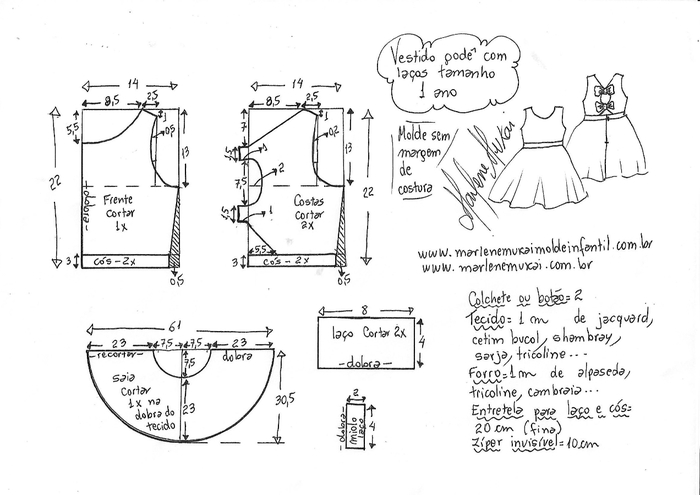 Vestido podê com
laços tamanho
1 ano
Molde sem
margem
de
costura
Marlene Mukai
www.marlenemukaimoldeinfantil.com.br
www.marlenemukai.com.br
14
8,5
2,5
1
5,5
0,5
13
22
dobra
Frente
Cortar
1x
3
cós-2x
0,5
14
8,5
2,5
1
7
0,2
1,5
1
13
7,5
2
22
Costas
cortar
2x
1,5
1
5,5
3
cós-2x
61
23
7,5
7,5
23
recortar
dobra
7,5
saia
Cortar
1x na
dobra do
tecido
23
30,5
8
laço Cortar 2x
4
dobra
2
dobra
miolo
laço
4
Colchete ou botão=2
Tecido= 1 m de jacquard,
cetim bucol, shambray,
sarja, tricoline...
Forro=1m de alpaseda,
tricoline, cambraia...
Entretela para laço e cós=
20 cm (fina)
Zíper invisível=10cm